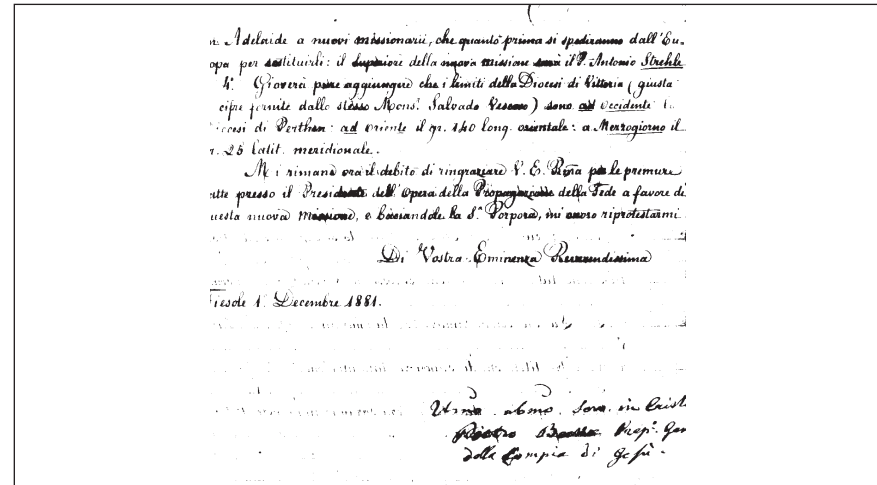 n Adelaide a nuovi missionarii, che quanto prima si spediranno dall'Eu-
opa per sostituirli: il Superiore della nuova missione sarà il P. Antonio Strehle
4° Gioverà pure aggiungere che i limiti della Diocesi di Vittoria (giusta
cifre fornite dallo stesso Mons.r Salvado Vescovo) sono ad Occidente la
iocesi di Perthen: ad oriente il gr. 140 long. orientale: a Mezzogiorno il
r. 25 latit. meridionale.
Mi rimane ora il debito di ringraziare V. E. Rma per le premure
atte presso il Presidente dell'Opera della Propagazione della Fede a favore di
uesta nuova Missione, e baciandole la S. Porpora, mi onoro riprotestarmi
Di Vostra Eminenza Reverendissima
Fiesole 1° Decembre 1881.
Umo obmo servo in Crist
Pietro Beckx Prep. Gen
della Compia di Gesù.